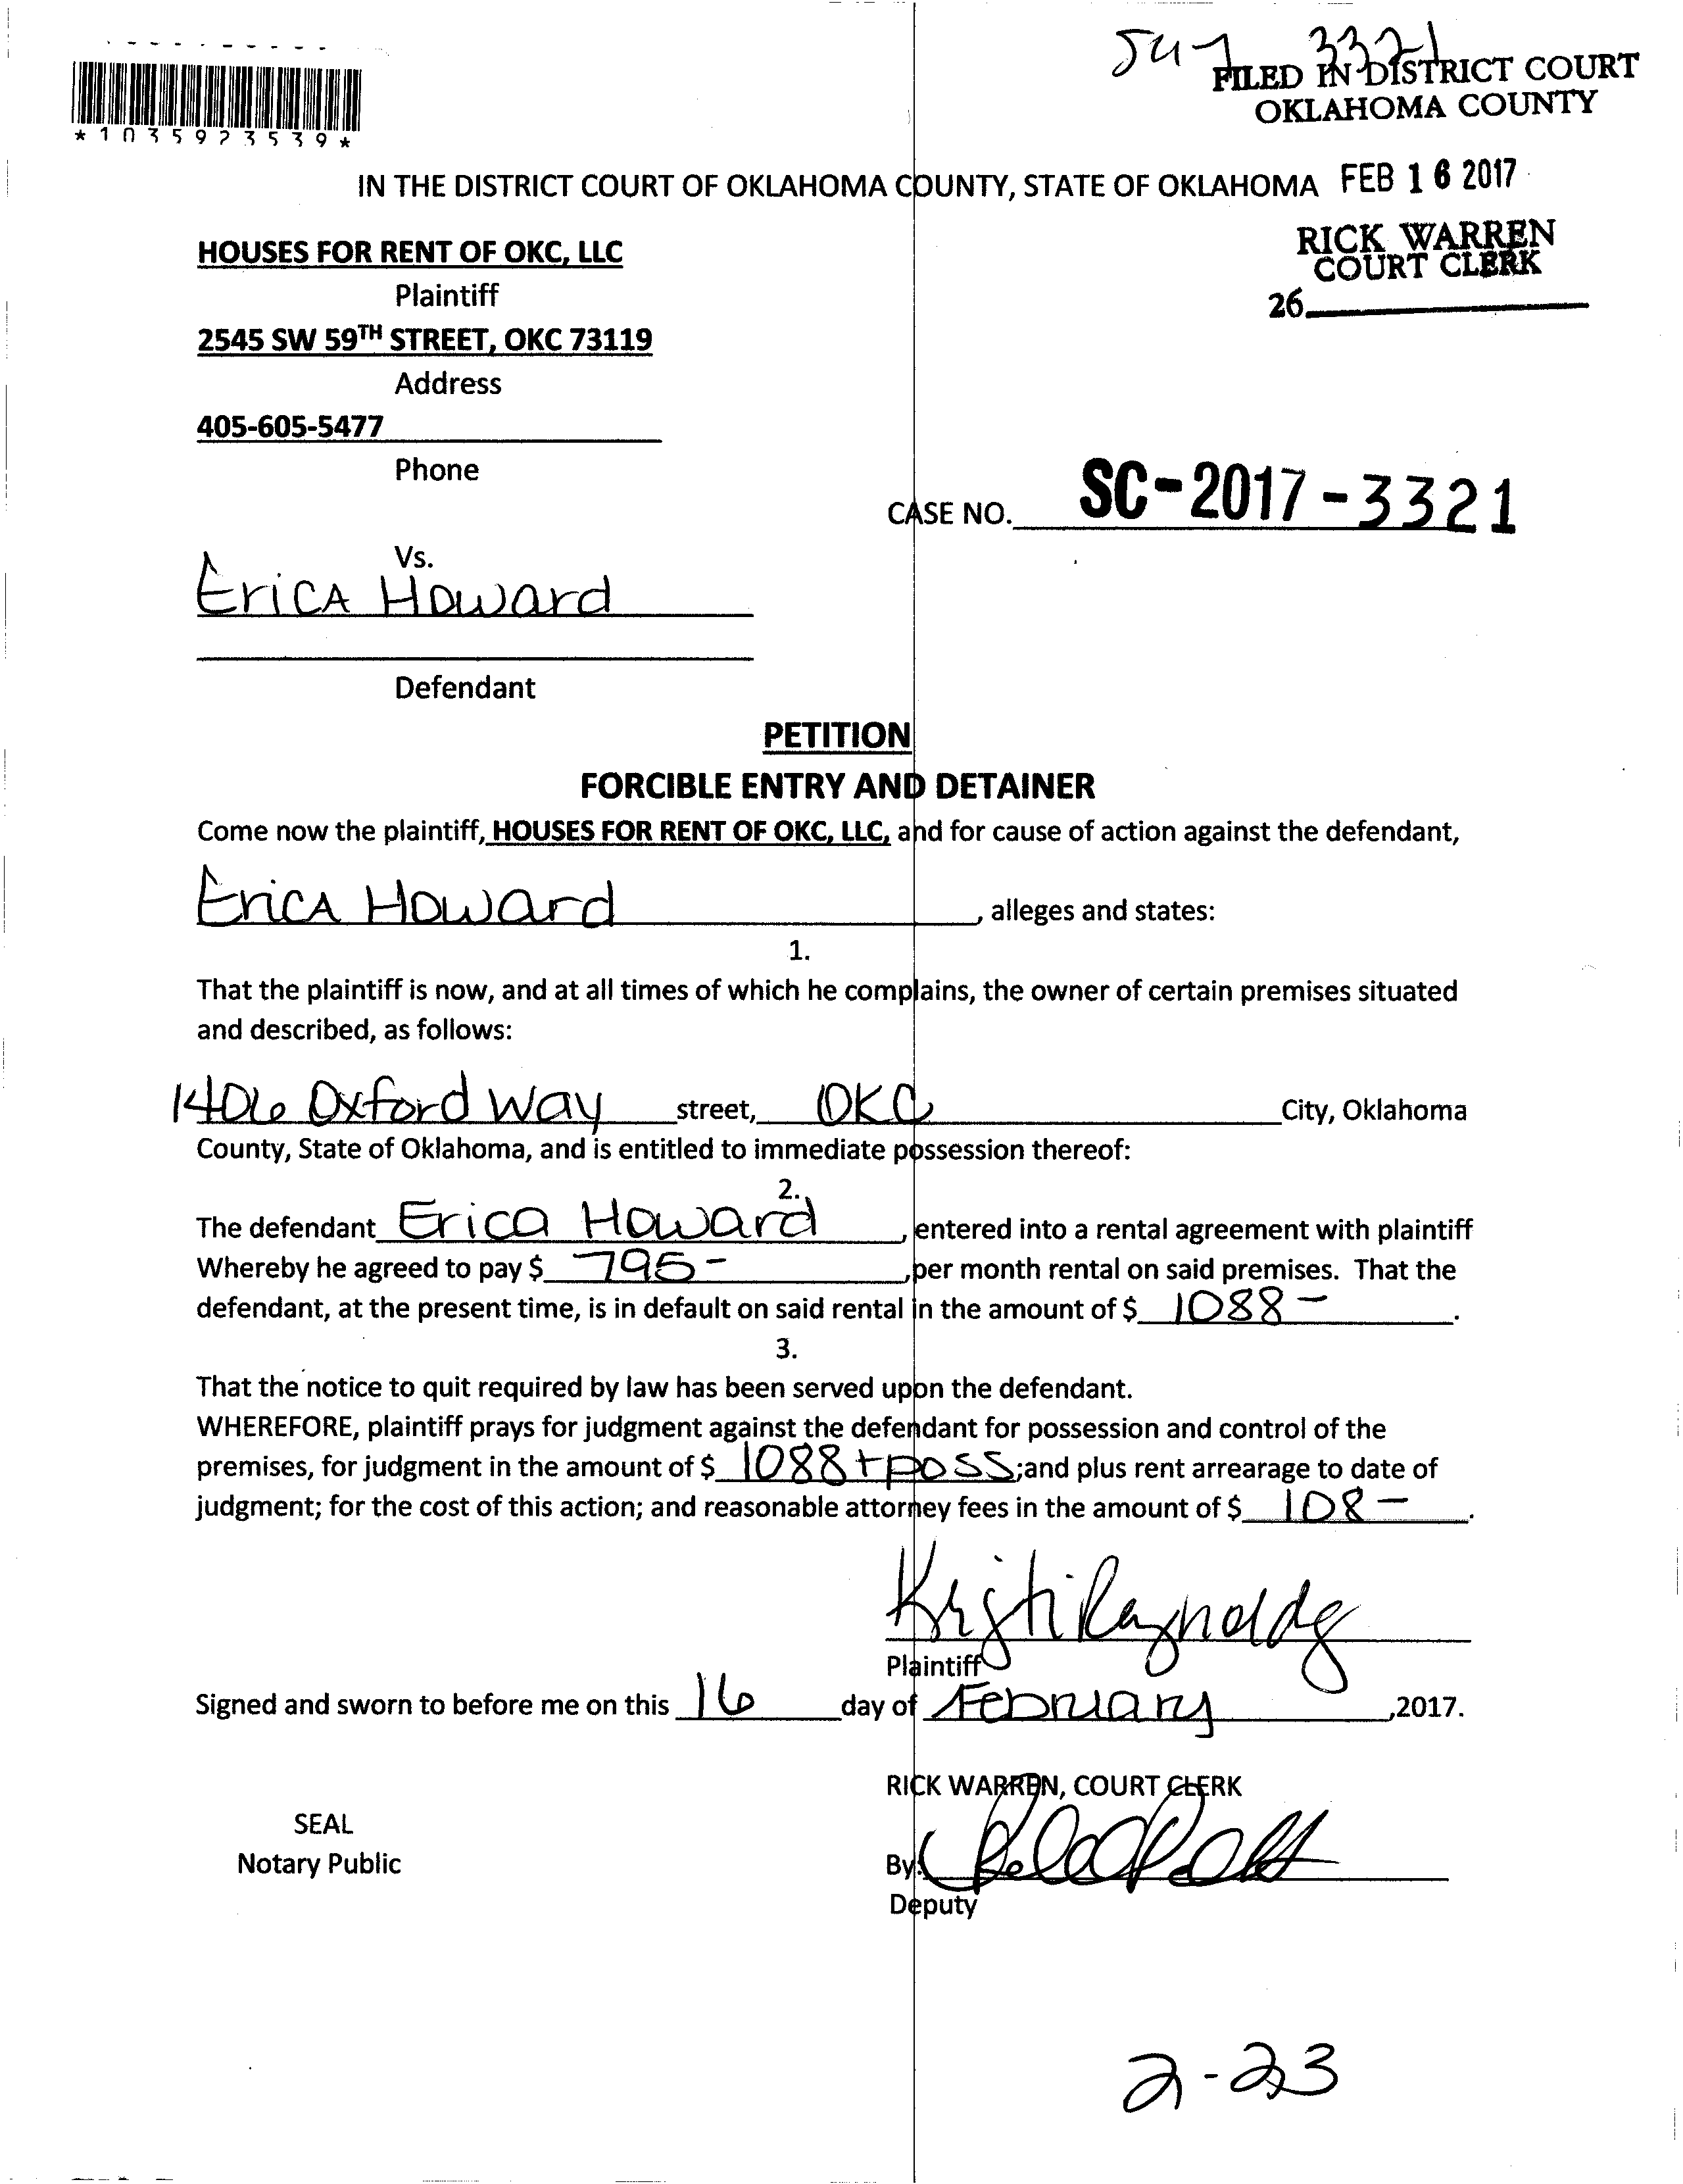 547 3321
FILED IN DISTRICT COURT
OKLAHOMA COUNTY
*1035923539*
IN THE DISTRICT COURT OF OKLAHOMA COUNTY, STATE OF OKLAHOMA FEB 16 2017
HOUSES FOR RENT OF OKC, LLC
RICK WARREN
COURT CLERK
Plaintiff
26
2545 SW 59TH STREET, OKC 73119
Address
405-605-5477
Phone
CASE NO. SC-2017-3321
Vs.
Erica Howard
Defendant
PETITION
FORCIBLE ENTRY AND DETAINER
Come now the plaintiff, HOUSES FOR RENT OF OKC, LLC, and for cause of action against the defendant,
Erica Howard, alleges and states:
1.
That the plaintiff is now, and at all times of which he complains, the owner of certain premises situated
and described, as follows:
1406 Oxford Way street, OKC City, Oklahoma
County, State of Oklahoma, and is entitled to immediate possession thereof:
2.
The defendant Erica Howard, entered into a rental agreement with plaintiff
Whereby he agreed to pay $ 795- ,per month rental on said premises. That the
defendant, at the present time, is in default on said rental in the amount of $ 1088-.
3.
That the notice to quit required by law has been served upon the defendant.
WHEREFORE, plaintiff prays for judgment against the defendant for possession and control of the
premises, for judgment in the amount of $ 1088+poss;and plus rent arrearage to date of
judgment; for the cost of this action; and reasonable attorney fees in the amount of $ 108-.
Kristi Reynolds
Plaintiff
Signed and sworn to before me on this 16 day of February ,2017.
RICK WARREN, COURT CLERK
SEAL
Notary Public
By:
Deputy
2-23